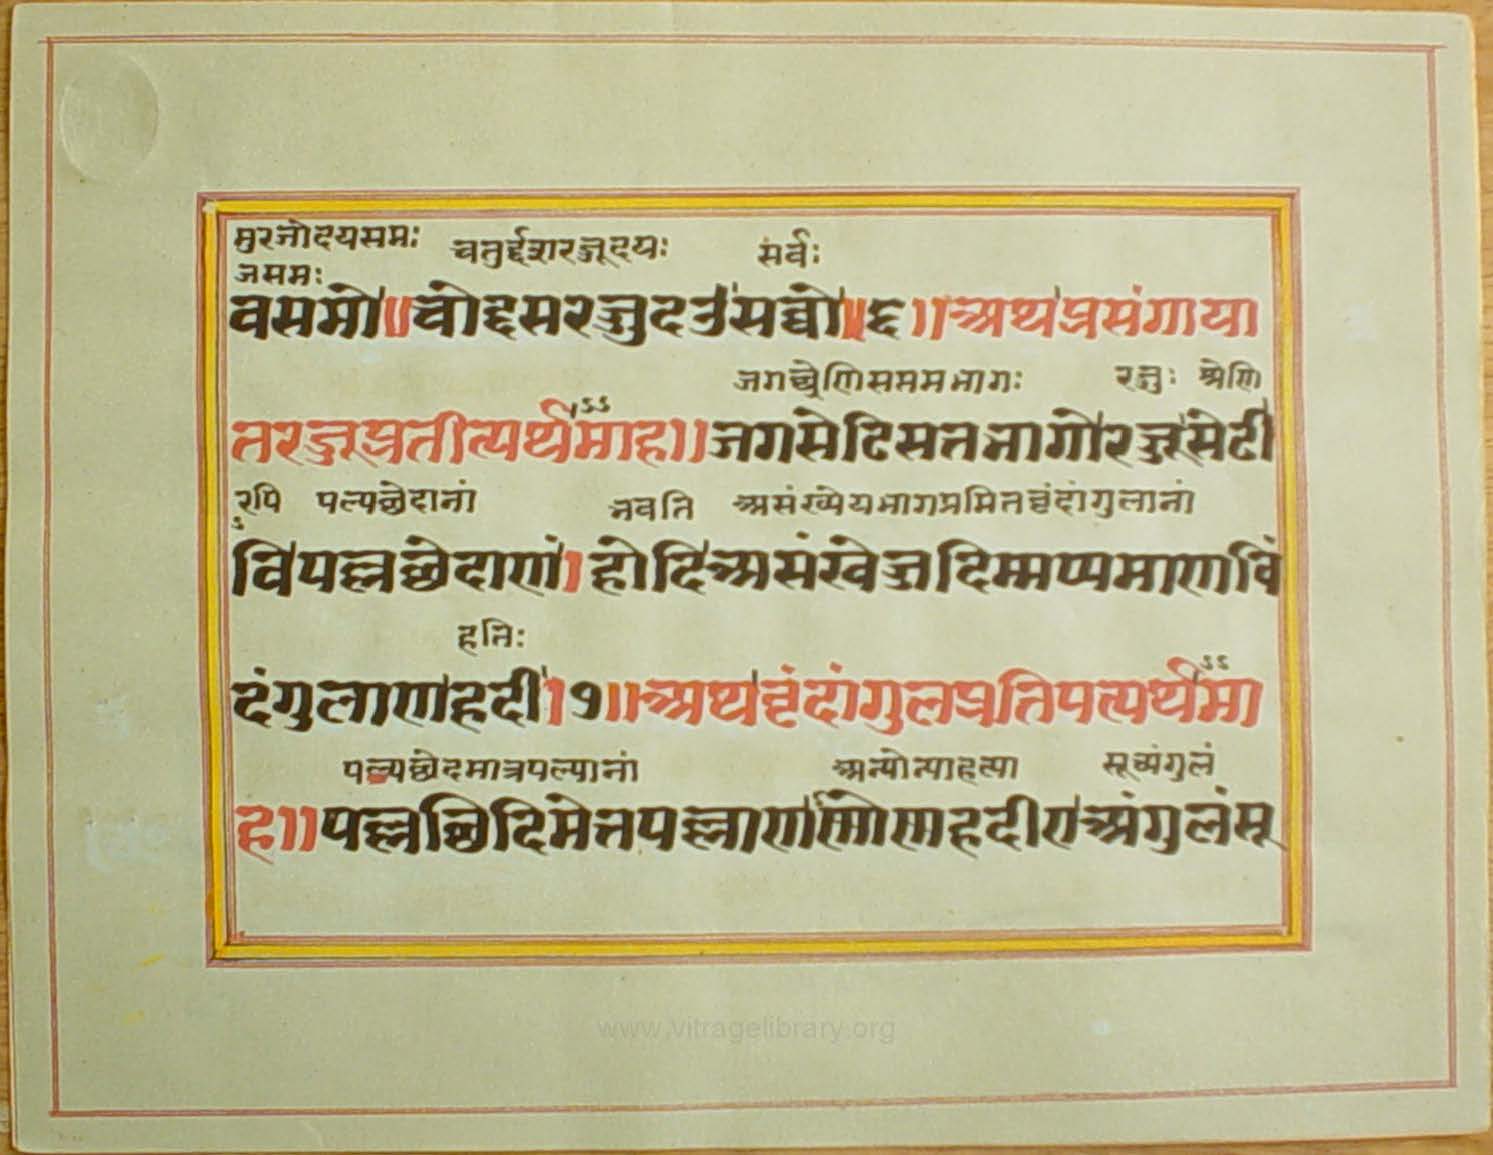 मुरजोदयसमः चतुर्द्दशरज्जूदयः सर्वः
जसमः
वसमो॥ चोद्दसरज्जुदउ सव्वो॥६॥ अथ प्रसंगाया
जगच्छ्रेणिसप्तमभागः रज्जुः श्रेणि
तरज्जूप्रतीत्यर्थमाह॥ जगसेढिसत्तभागो रज्जू सेढी
रपि पल्यछेदानां भवति असंख्येयभागप्रमितवृंदांगुलानां
वि पल्लछेदाणं। होदि असंखेज्जदिमप्पमाणविं
हतिः
दंगुलाण हदी।७॥ अथ वृंदांगुलप्रतिपत्यर्थमा
पल्यछेदमात्रपल्यानां अन्योन्याहत्या सूच्यंगुलं
ह॥ पल्लछिदिमेत्तपल्लाणण्णोण्णहदीए अंगुलं सू
www.vitragelibrary.org